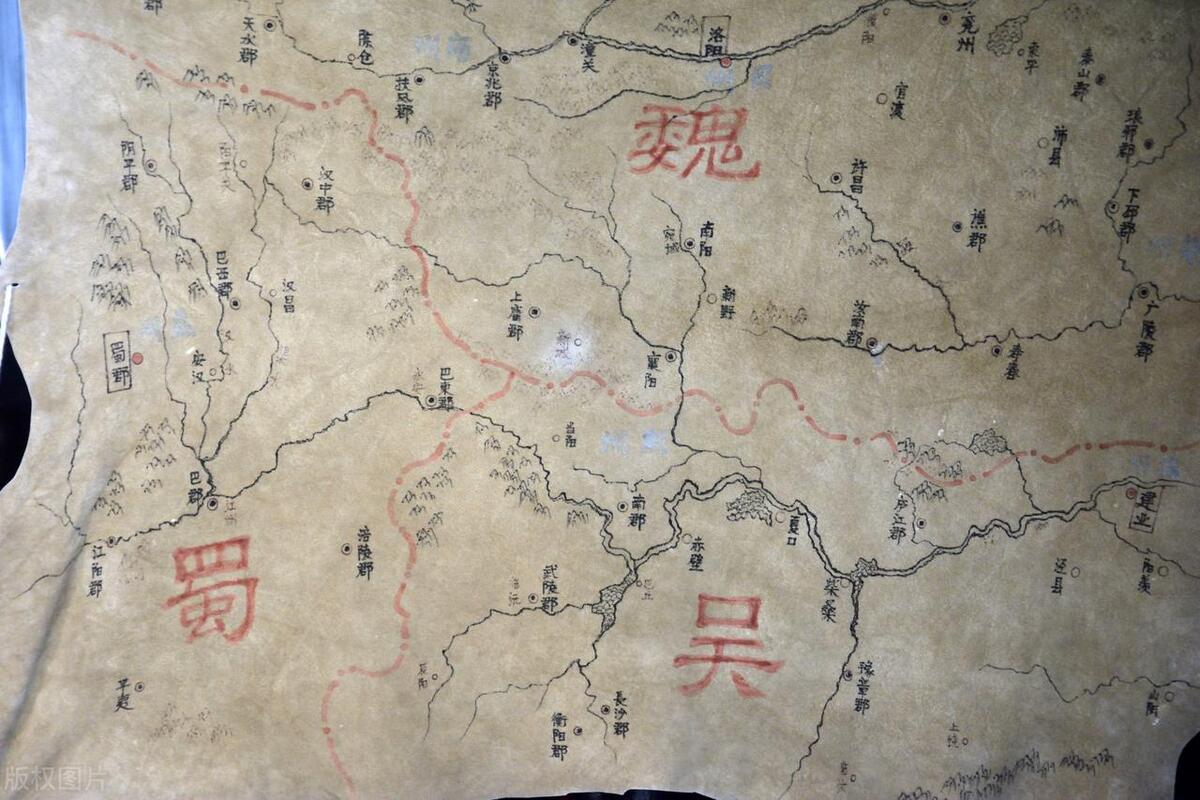 天水郡
陈仓
扶风郡
京兆郡
潼关
洛阳
兖州
东平
泰山郡
官渡
沛县
琅邪郡
魏
阴平郡
汉中郡
许昌
谯郡
下邳郡
南阳
宛城
新野
汝南郡
寿春
广陵郡
巴西郡
汉昌
上庸郡
襄阳
蜀郡
安汉
永安
巴东郡
当阳
巴郡
江州
南郡
夏口
庐江郡
建业
江阳郡
涪陵郡
赤壁
武陵郡
巴丘
柴桑
泾县
阳羡
蜀
吴
平夷
豫章郡
长沙郡
衡阳郡
山阴
版权图片